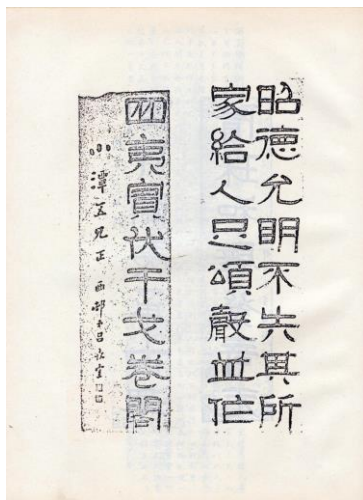 昭德允明不失其所
家給人足頌聲並作
四夷賓伏干戈卷閣
小潭五兄正